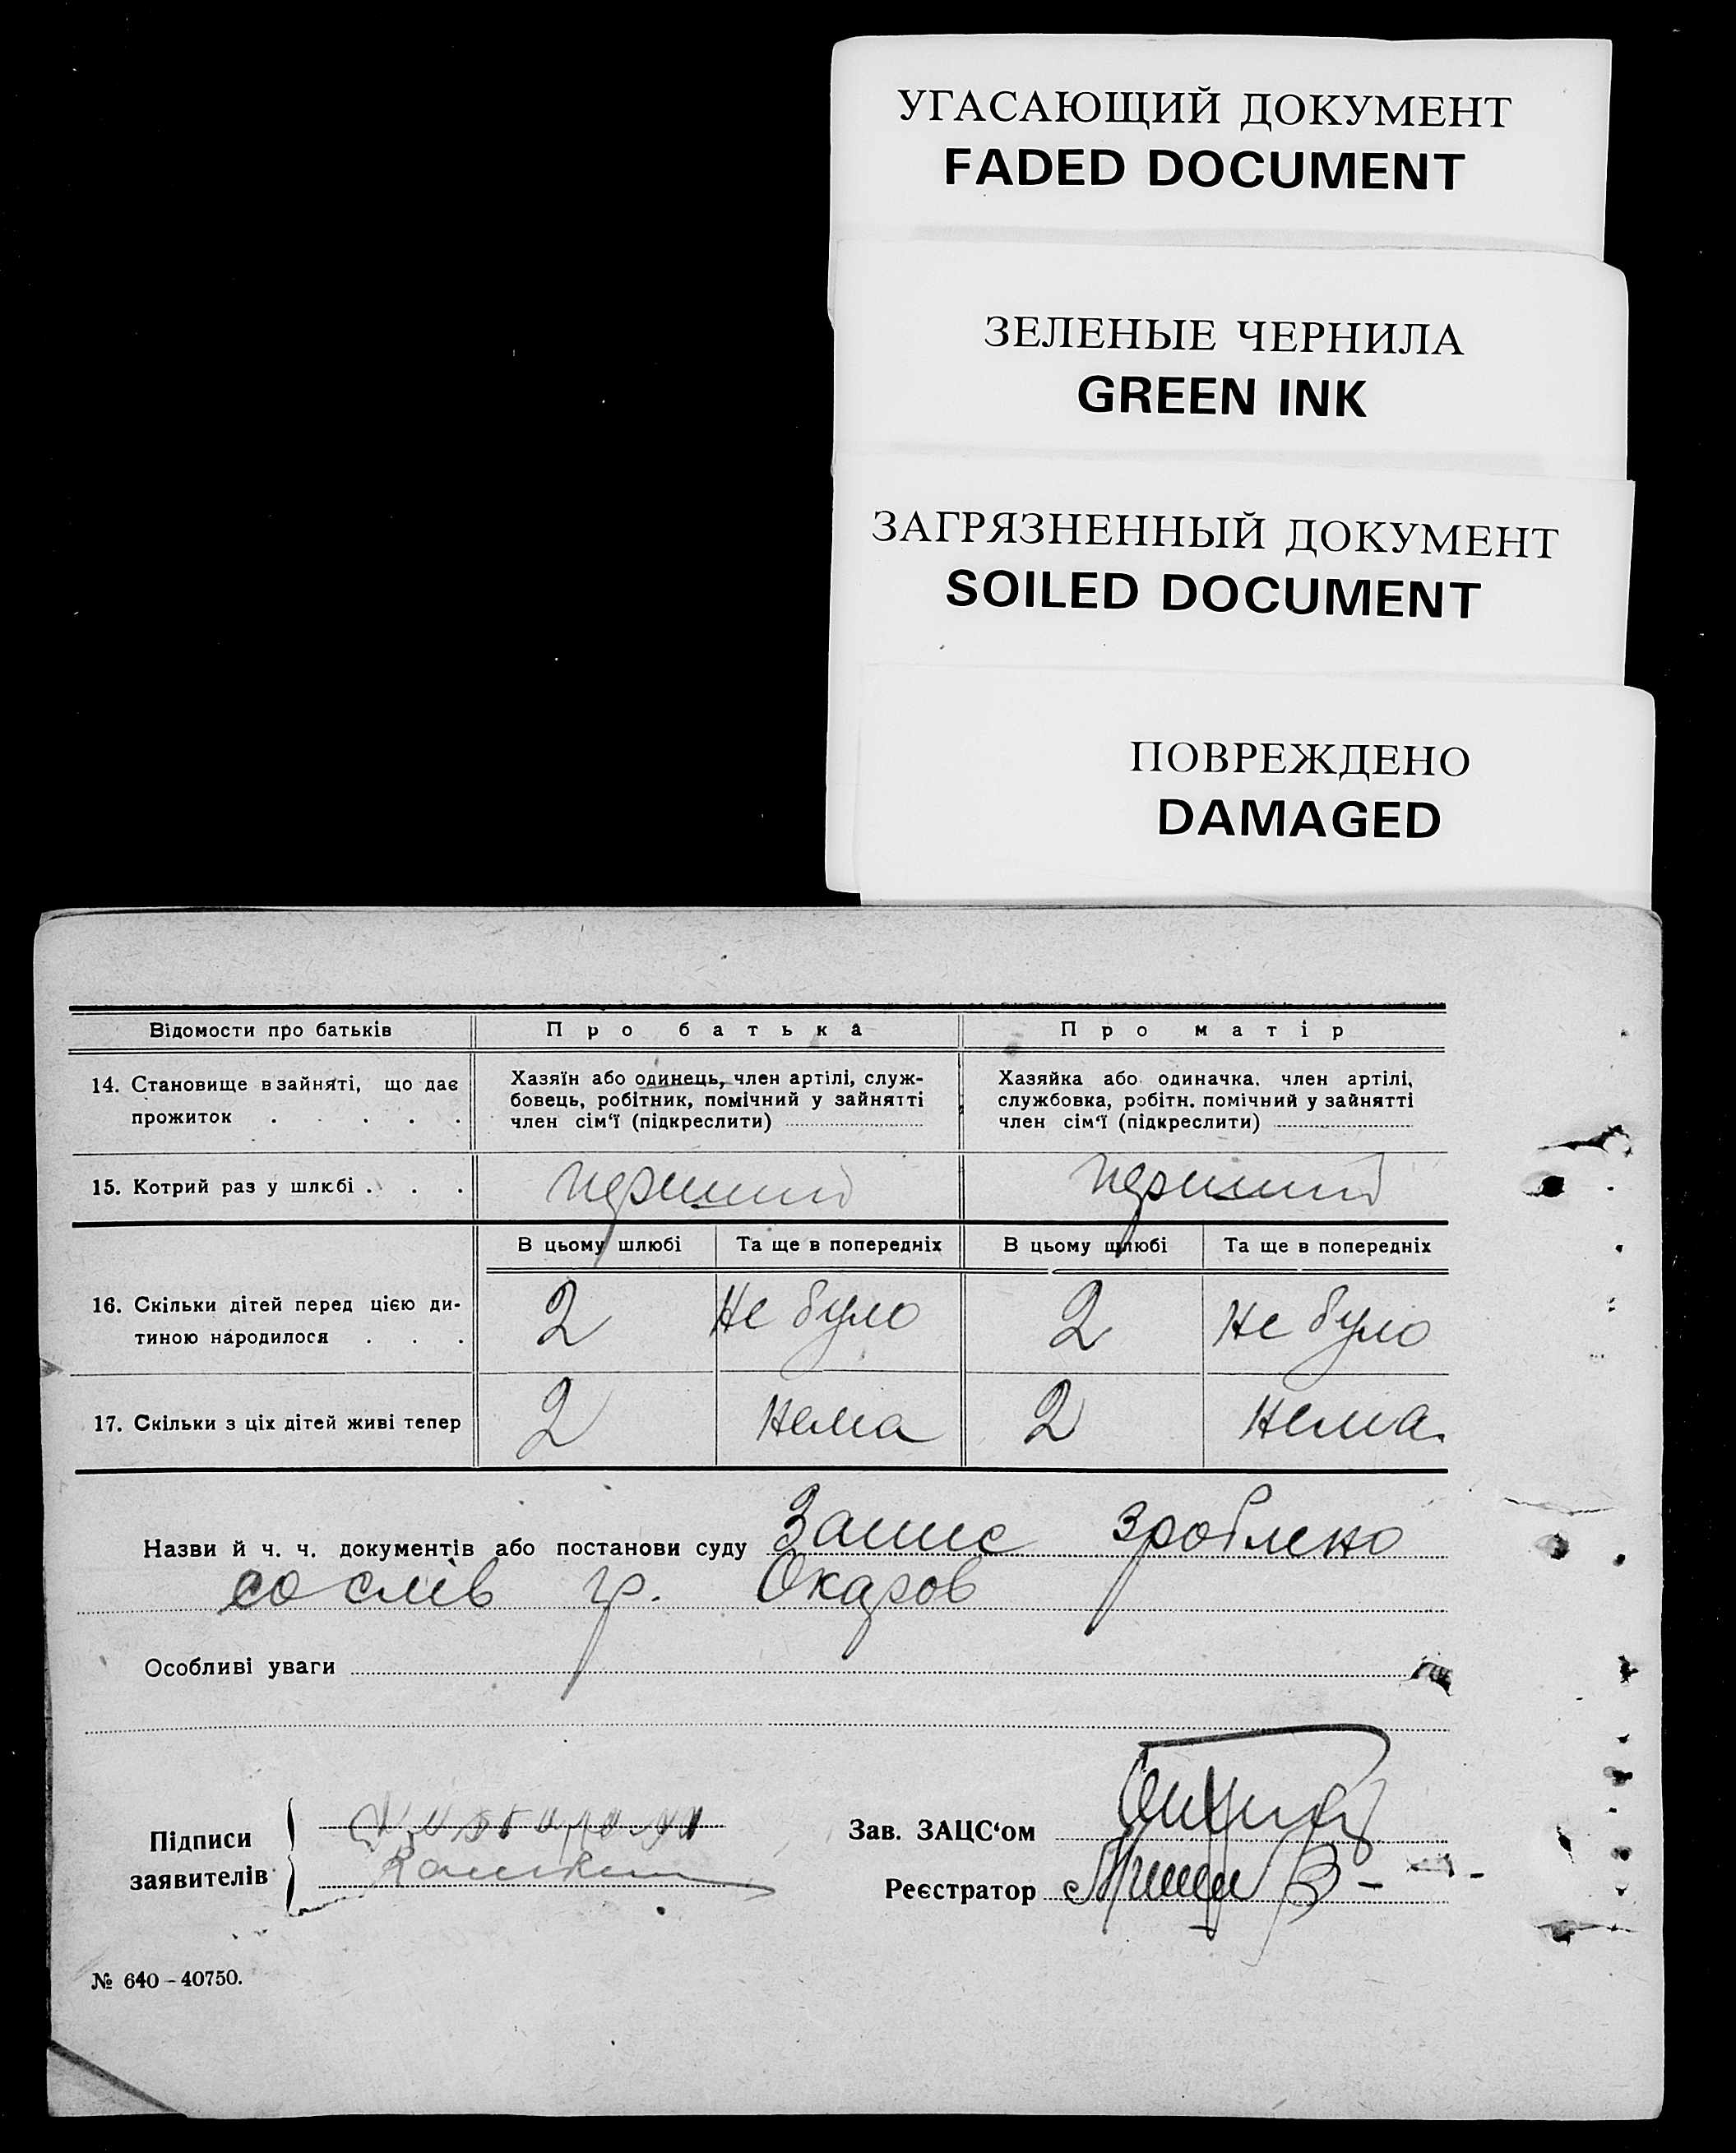 УГАСАЮЩИЙ ДОКУМЕНТ
FADED DOCUMENT
ЗЕЛЕНЫЕ ЧЕРНИЛА
GREEN INK
ЗАГРЯЗНЕННЫЙ ДОКУМЕНТ
SOILED DOCUMENT
ПОВРЕЖДЕНО
DAMAGED
Відомости про батьків Про батька Про матір
14. Становище в зайняті, що дає прожиток . . . . .
Хазяїн або одинець, член артілі, служ-
бовець, робітник, помічний у зайнятті
член сім'ї (підкреслити)
Хазяйка або одиначка, член артілі,
службовка, робітн. помічний у зайнятті
член сім'ї (підкреслити)
15. Котрий раз у шлюбі . . . перший перший
В цьому шлюбі Та ще в попередніх В цьому шлюбі Та ще в попередніх
16. Скільки дітей перед цією ди-
тиною народилося . . . 2 Не було 2 Не було
17. Скільки з ціх дітей живі тепер 2 нема 2 нема.
Назви й ч. ч. документів або постанови суду Запис зроблено
со слів гр.
Особливі уваги
Підписи
заявителів
Зав. ЗАЦС'ом
Реєстратор
№ 640-40750.